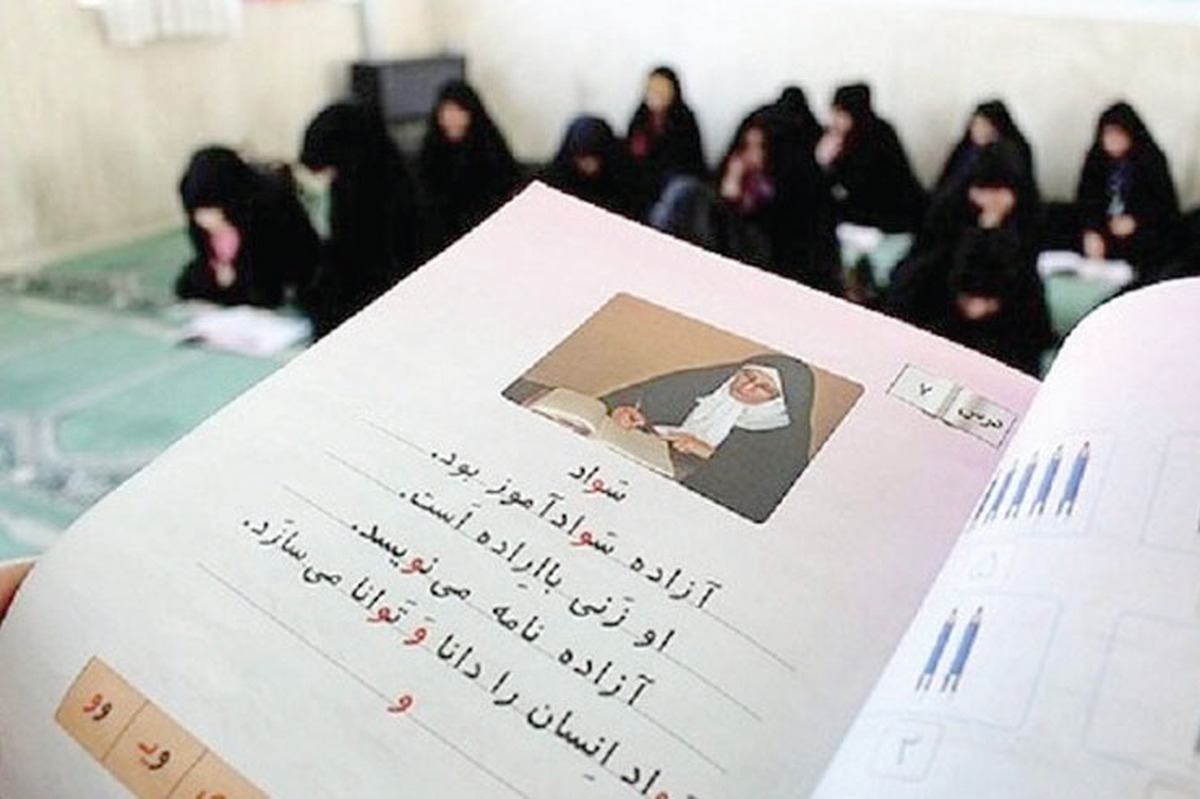 درس ۷
سَواد
آزاده سَوادآموز بود.
او زَنی بااِراده اَست.
آزاده نامه می‌نویسد.
واد اِنسان را دانا وَ تَوانا می‌سازَد.
و
۵
۲